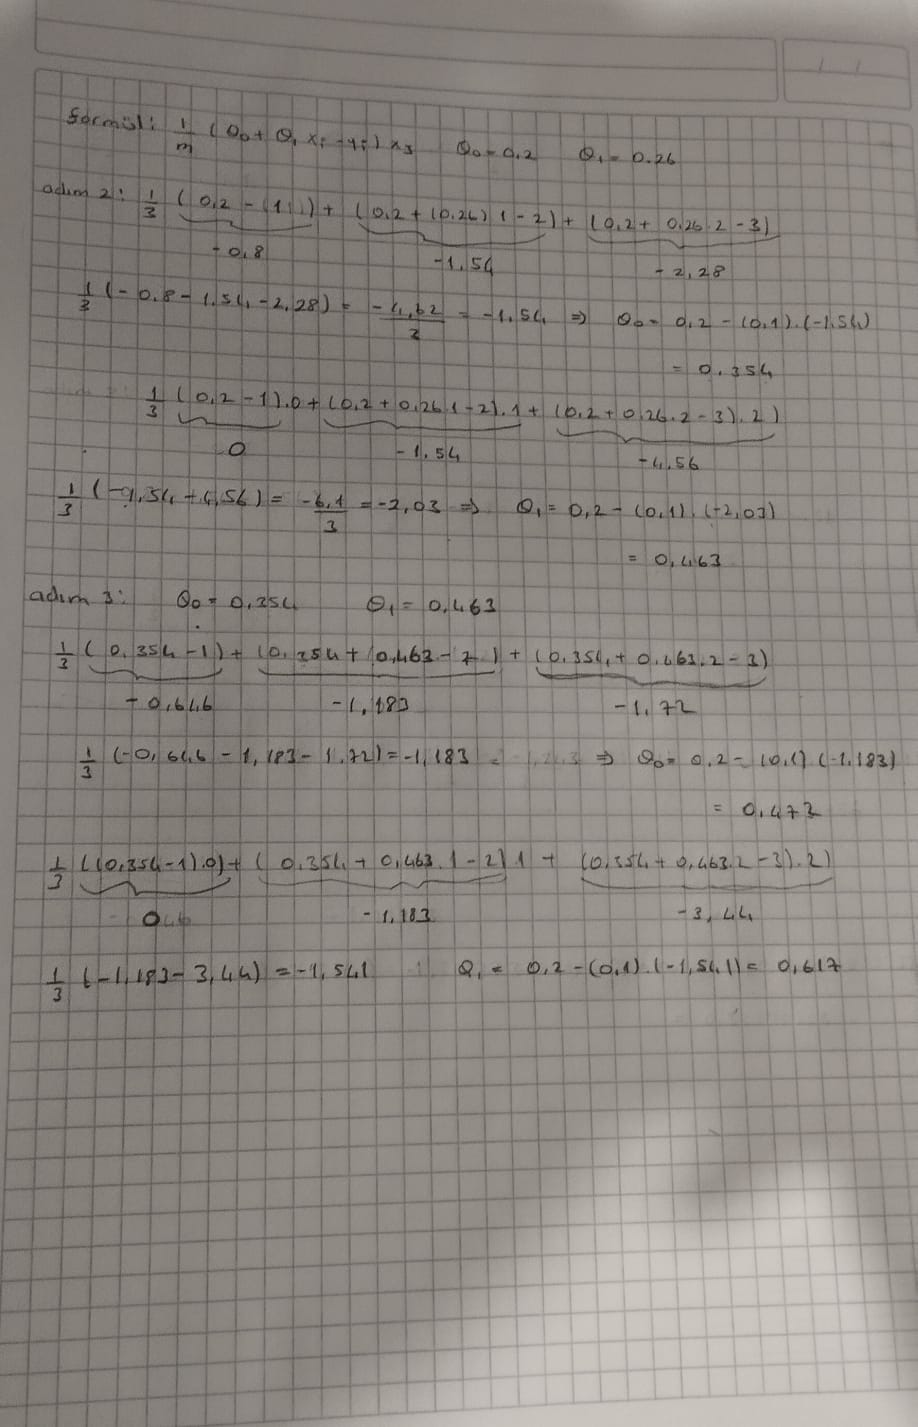 formül: 1/m (θ₀ + θ₁ xᵢ - yᵢ) xⱼ θ₀ = 0.2 θ₁ = 0.26
adım 2: 1/3 (0,2 - (1)) + (0.2 + (0.26) 1 - 2) + (0.2 + 0.26.2 - 3)
-0,8 -1.54 -2,28
1/3 (-0.8 - 1.54 - 2,28) = -4,62/3 = -1.54 ⇒ θ₀ = 0.2 - (0,1).(-1.54)
= 0.354
1/3 (0,2 - 1).0 + (0.2 + 0,26.1 - 2).1 + (0.2 + 0,26.2 - 3).2)
0 -1.54 -4.56
1/3 (-1,54 + 4,56) = -6,1/3 = -2,03 ⇒ θ₁ = 0,2 - (0,1).(-2,03)
= 0,463
adım 3: θ₀ = 0,354 θ₁ = 0,463
1/3 (0,354 - 1) + (0.354 + 0,463 - 2) + (0.354 + 0.463.2 - 3)
-0,646 -1,183 -1,72
1/3 (-0,646 - 1,183 - 1.72) = -1,183 ⇒ θ₀ = 0.2 - (0,1).(-1.183)
= 0,473
1/3 ((0,354 - 1).0) + (0.354 + 0,463.1 - 2) 1 + (0,354 + 0,463.2 - 3).2)
0 -1,183 -3,44
1/3 (-1,183 - 3,44) = -1,541 θ₁ = 0,2 - (0,1).(-1,541) = 0,617